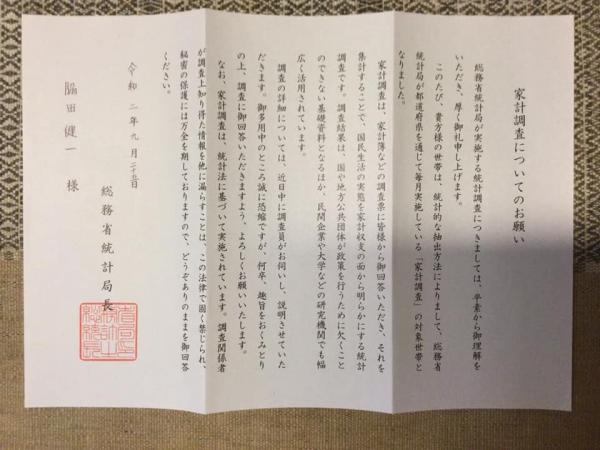 家計調査についてのお願い
総務省統計局が実施する統計調査につきましては、平素から御理解を
いただき、厚く御礼申し上げます。
このたび、貴方様の世帯は、統計的な抽出方法によりまして、総務省
統計局が都道府県を通じて毎月実施している「家計調査」の対象世帯と
なりました。
家計調査は、家計簿などの調査票に皆様から御回答いただき、それを
集計することで、国民生活の実態を家計収支の面から明らかにする統計
調査です。調査結果は、国や地方公共団体が政策を行うために欠くこと
のできない基礎資料となるほか、民間企業や大学などの研究機関でも幅
広く活用されています。
調査の詳細については、近日中に調査員がお伺いし、説明させていた
だきます。御多用中のところ誠に恐縮ですが、何卒、趣旨をおくみとり
の上、調査に御回答いただきますよう、よろしくお願いいたします。
なお、家計調査は、統計法に基づいて実施されています。調査関係者
が調査上知り得た情報を他に漏らすことは、この法律で固く禁じられ、
秘密の保護には万全を期しておりますので、どうぞありのままを御回答
ください。
令和二年九月二十日
総務省統計局長
脇田健一 様